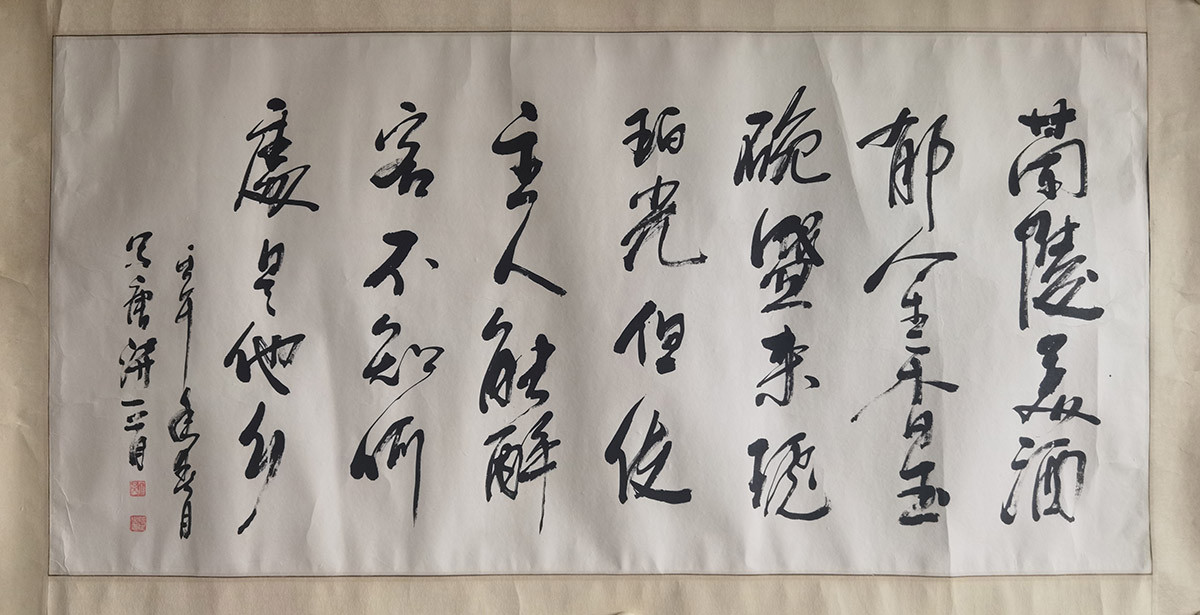 蘭陵美酒
郁金香玉
碗盛来琥
珀光但使
主人能醉
客不知何
處是他乡
午 春月